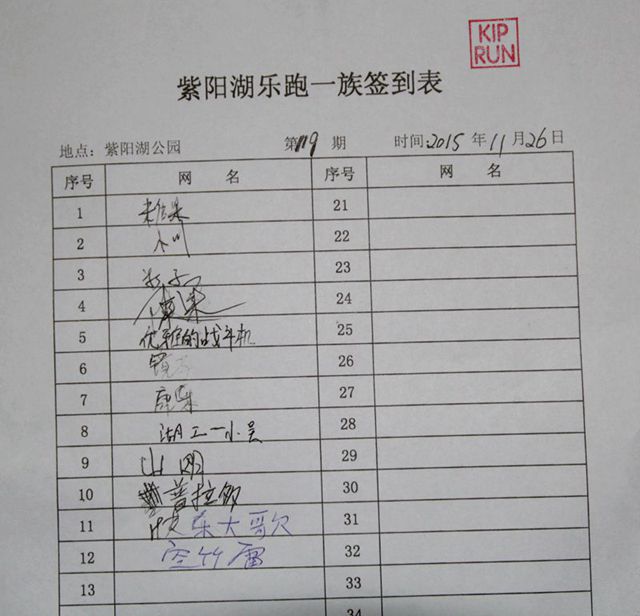 KIP
RUN
紫阳湖乐跑一族签到表
地点：紫阳湖公园 第119期 时间：2015年11月26日
序号 网 名 序号 网 名
1 21
2 小川 22
3 23
4 24
5 优雅的战斗机 25
6 26
7 27
8 湖工一小吴 28
9 山明 29
10 普拉多 30
11 快乐大哥 31
12 空竹雷 32
13 33
34